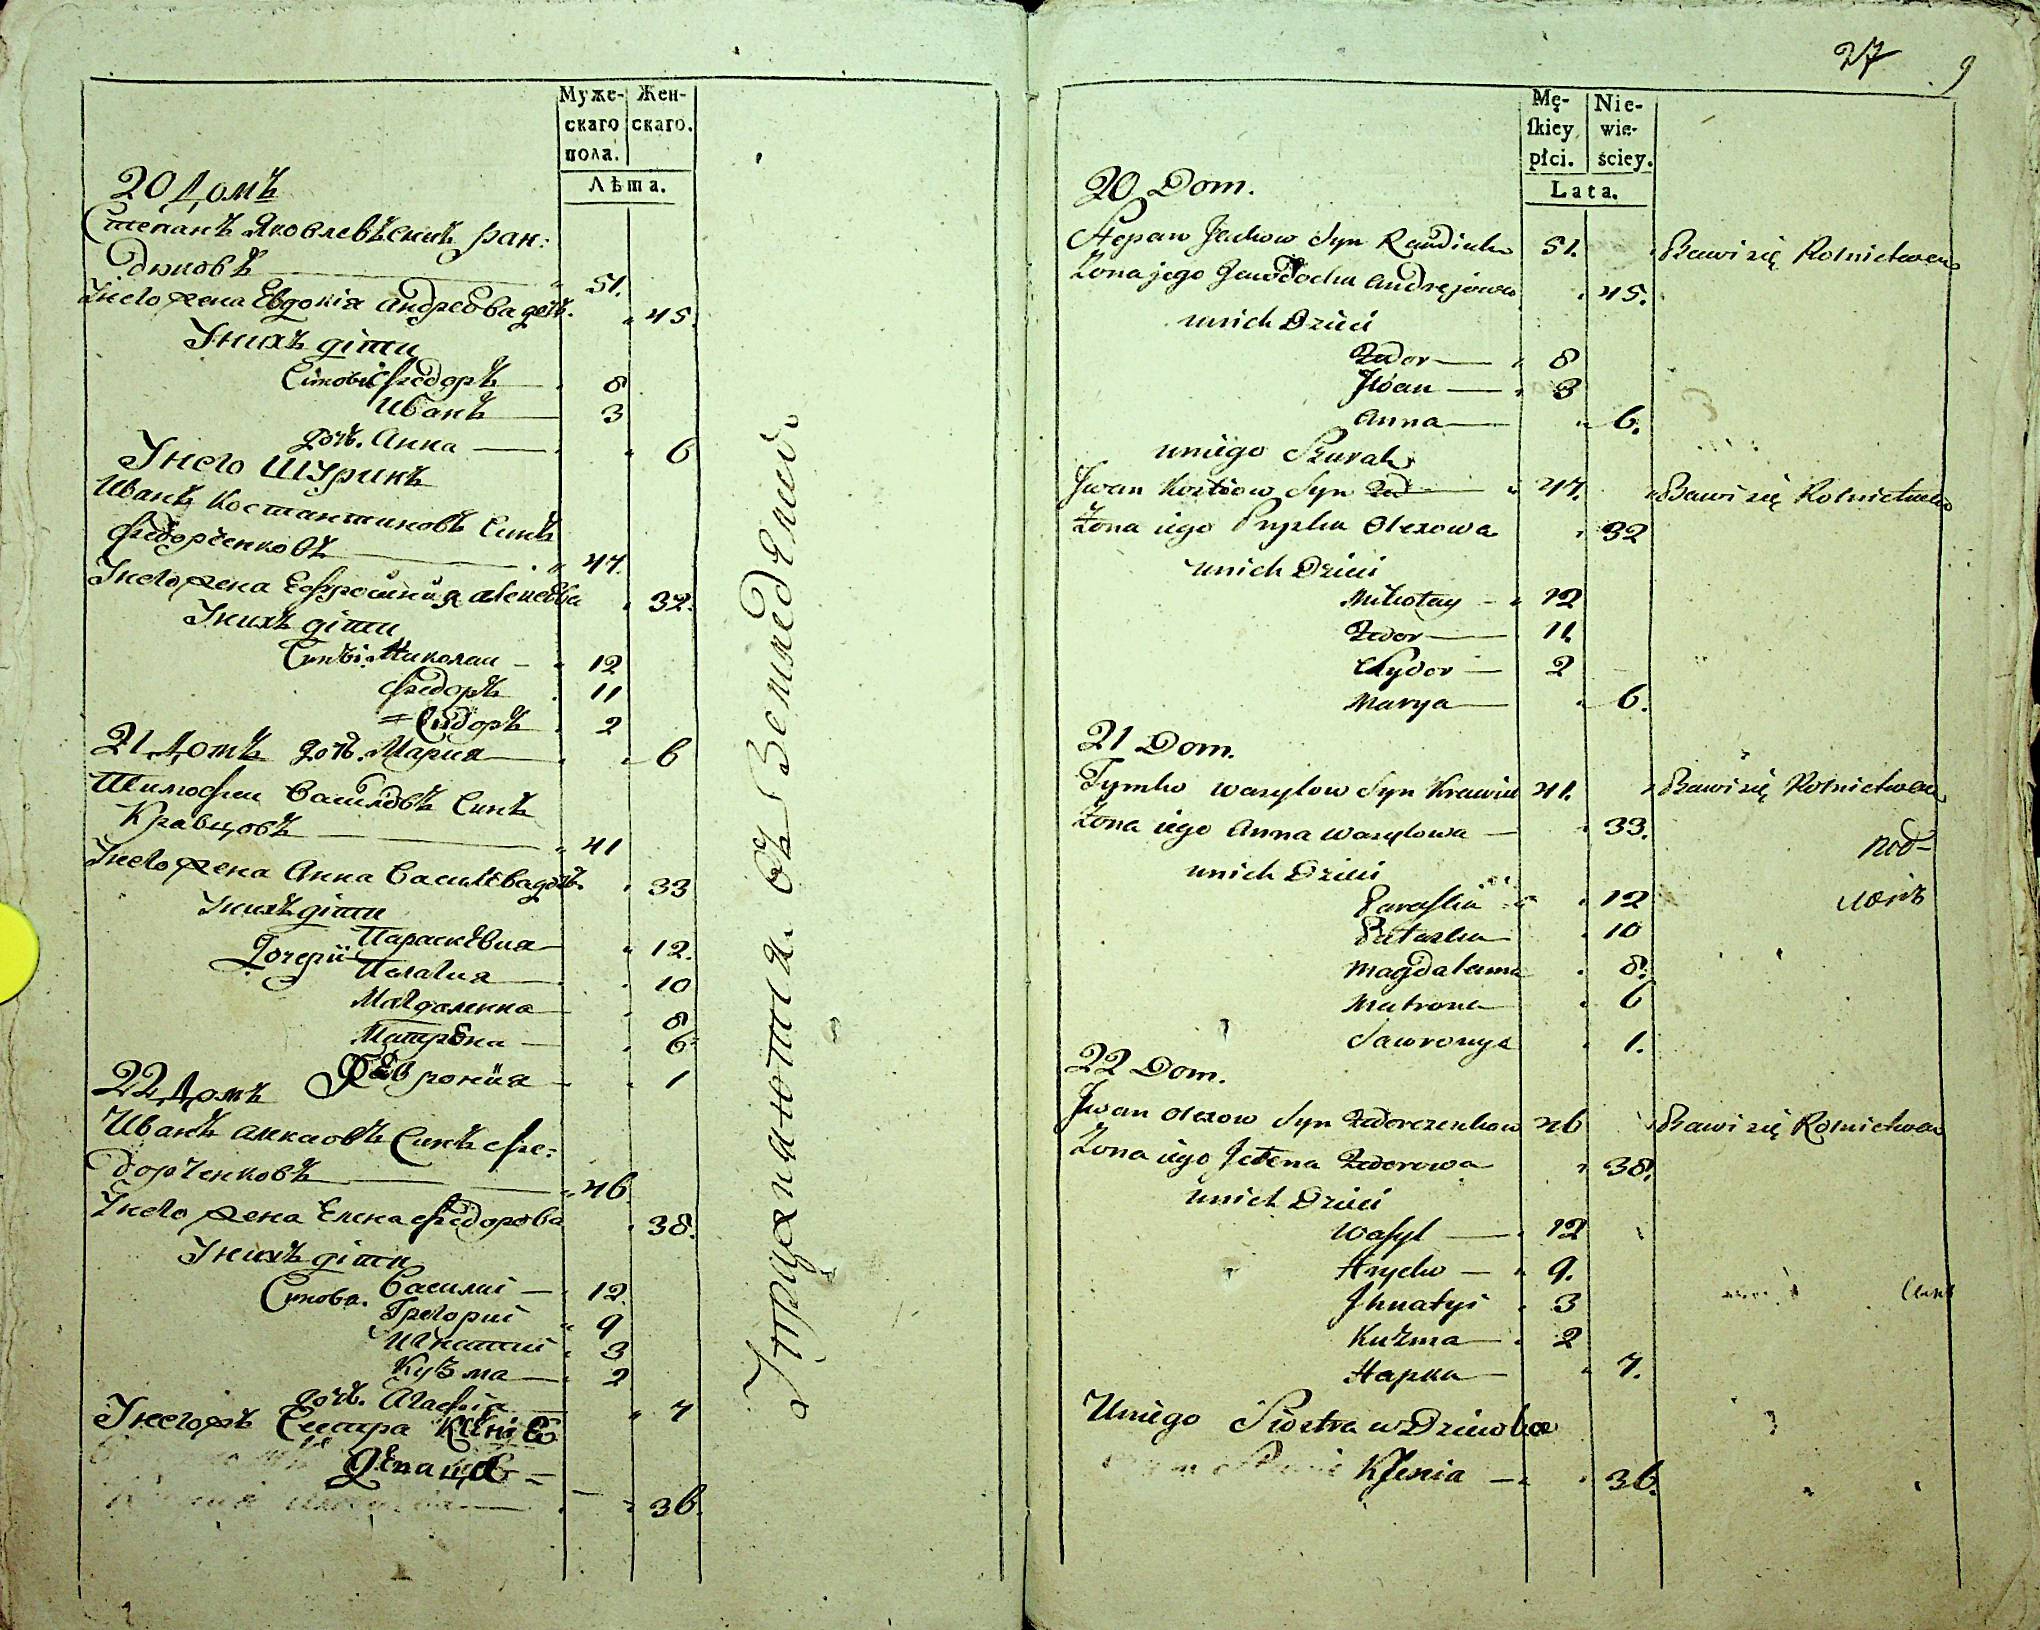 Муже-
скаго
пола.
Жен-
скаго.
Лѣта.
20 Домъ
Степанъ Яковлевъ синъ ран:
дюковъ 51.
Унего жена Евдокія Андреева доч. 45.
Унихъ діти
Синовіе Федоръ 8
Иванъ 3
доч. Анна 6
Унего Шуринъ
Иванъ Костантиновъ Синъ
Федорченковъ 47.
Унего жена Ефросинія Алексеева 32.
Унихъ діти
Сини: Николаи 12
Федоръ 11
Сидоръ 2
доч. Мария 6
21 Домъ
Тимофеи Василовъ Синъ
Кравцовъ 41
Унего жена Анна Василева доч. 33
Унихъ діти
Дочерии Параскевия 12.
Пелагия 10
Магдаленна 8
Матрона 6
Февронйя 1
22 Домъ
Иванъ Алексовъ Синъ Фе:
дорченковъ 46
Унего жена Елена Федорова 38.
Унихъ діти
Синова. Василиі 12.
Григориі 9
Игнатиі 3
Кузма 2
доч. Агафія 7
Унегожъ Сестра
36.
Упражняются въ Земледелиі
27
9
Mę-
skiey
płci.
Nie-
wie-
ściey.
Lata.
20 Dom.
Stepan Jackow Syn Randiuk 51. Bawi się Rolnictwem
Zona jego Jewdocha Andrejowa 45.
unich Dzieci
Fedor 8
Iwan 3
Anna 6.
uniego Szurak
Jwan Kostiow Syn Fed 47. Bawi się Rolnictwem
Zona iego Pryska Olexowa 32
unich Dzieci
Mikołay 12
Fedor 11.
Sydor 2
Marya 6.
21 Dom.
Tymko Wasylow Syn Krawiec 41. Bawi się Rolnictwem
Zona iego Anna Wasylowa 33.
unich Dzieci
Paraska 12
Palaszka 10
Magdalenna 8.
Matrona 6
Jawronya 1.
22 Dom.
Jwan Olexow Syn Fedorczenkow 46 Bawi się Rolnictwem
Zona iego Jelena Fedorowa 38.
unich Dzieci
Wasyl 12
Hrycko 9.
Jhnatyi 3
Kuzma 2
Hapka 7.
Uniego Siostra w Dziewka
Xsenia 36.